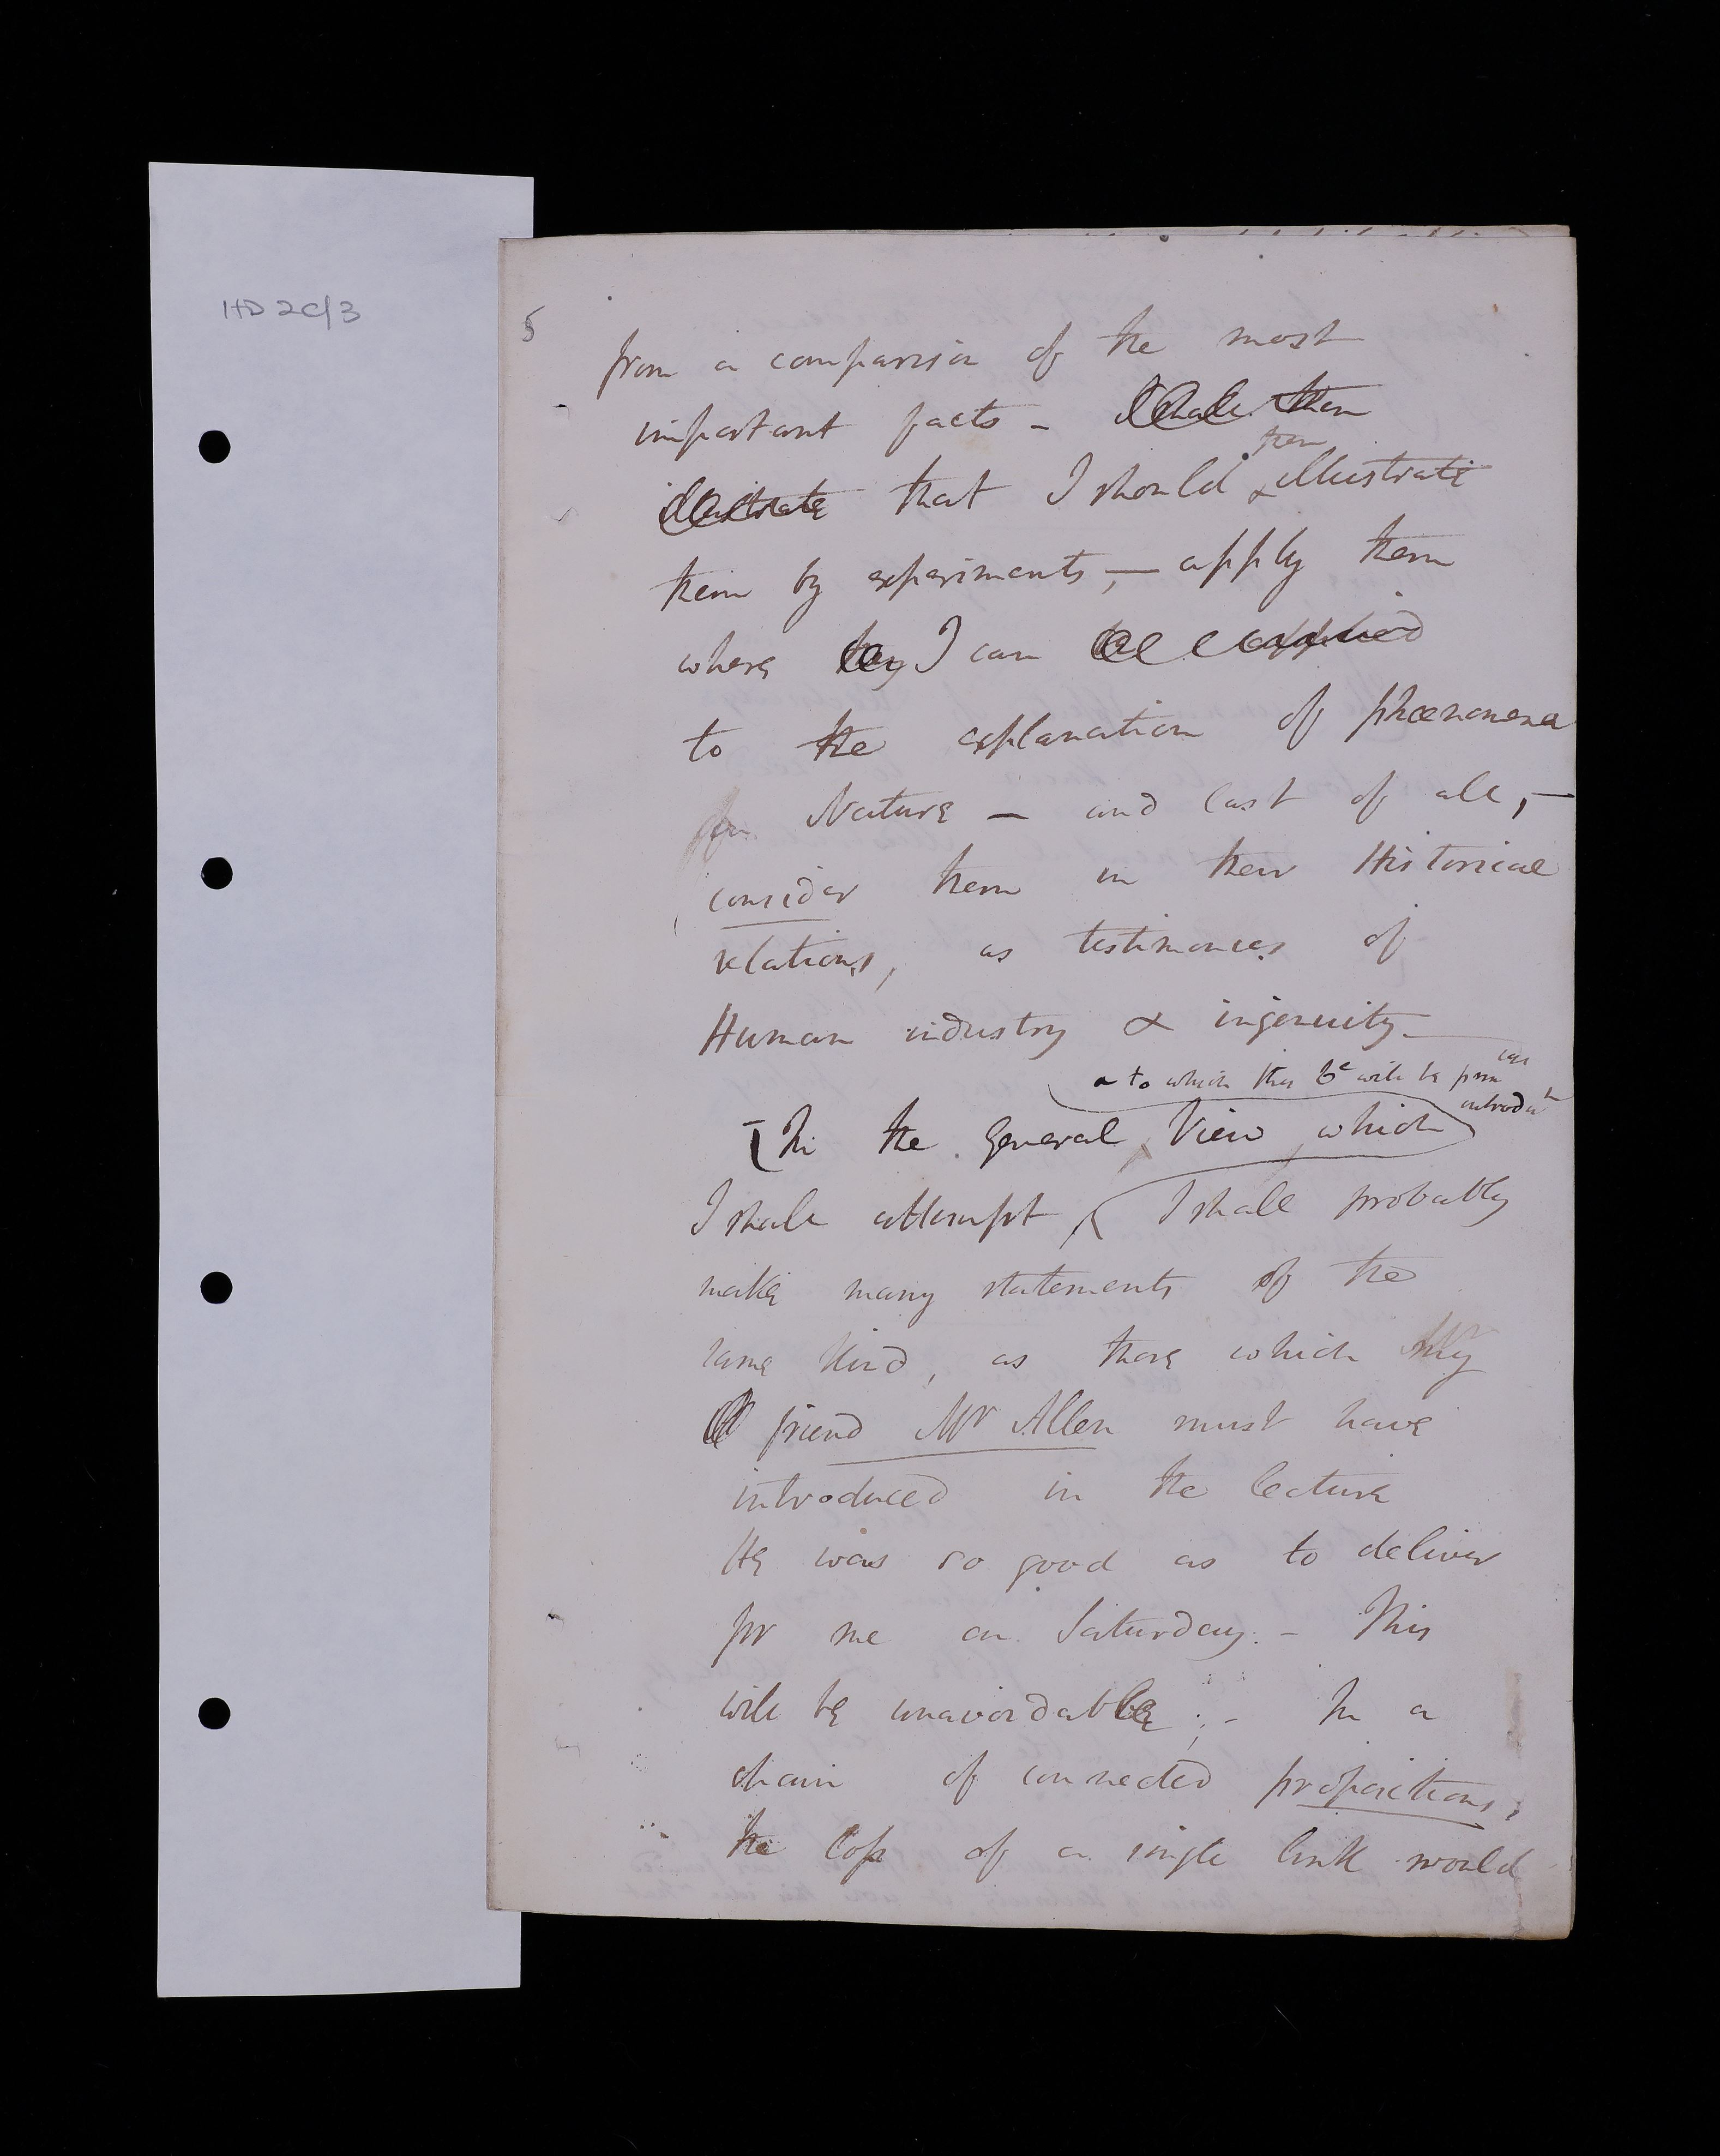 HD 2C/3
5
from a comparison of the most
important facts - I shall then
illustrate that I should then illustrate
them by experiments, — apply them
where they I can be applied
to the explanation of phœnomena
Nature — and last of all, —
consider them in their Historical
relations, as testimonies of
Human industry & ingenuity_
to which this will be
In the general View which
I shall attempt I shall probably
make many statements of the
same kind, as those which My
friend Mr Allen must have
introduced in the lecture
He was so good as to deliver
for me on Saturday. - This
will be unavoidable; - In a
chain of connected propositions,
the loss of a single link would